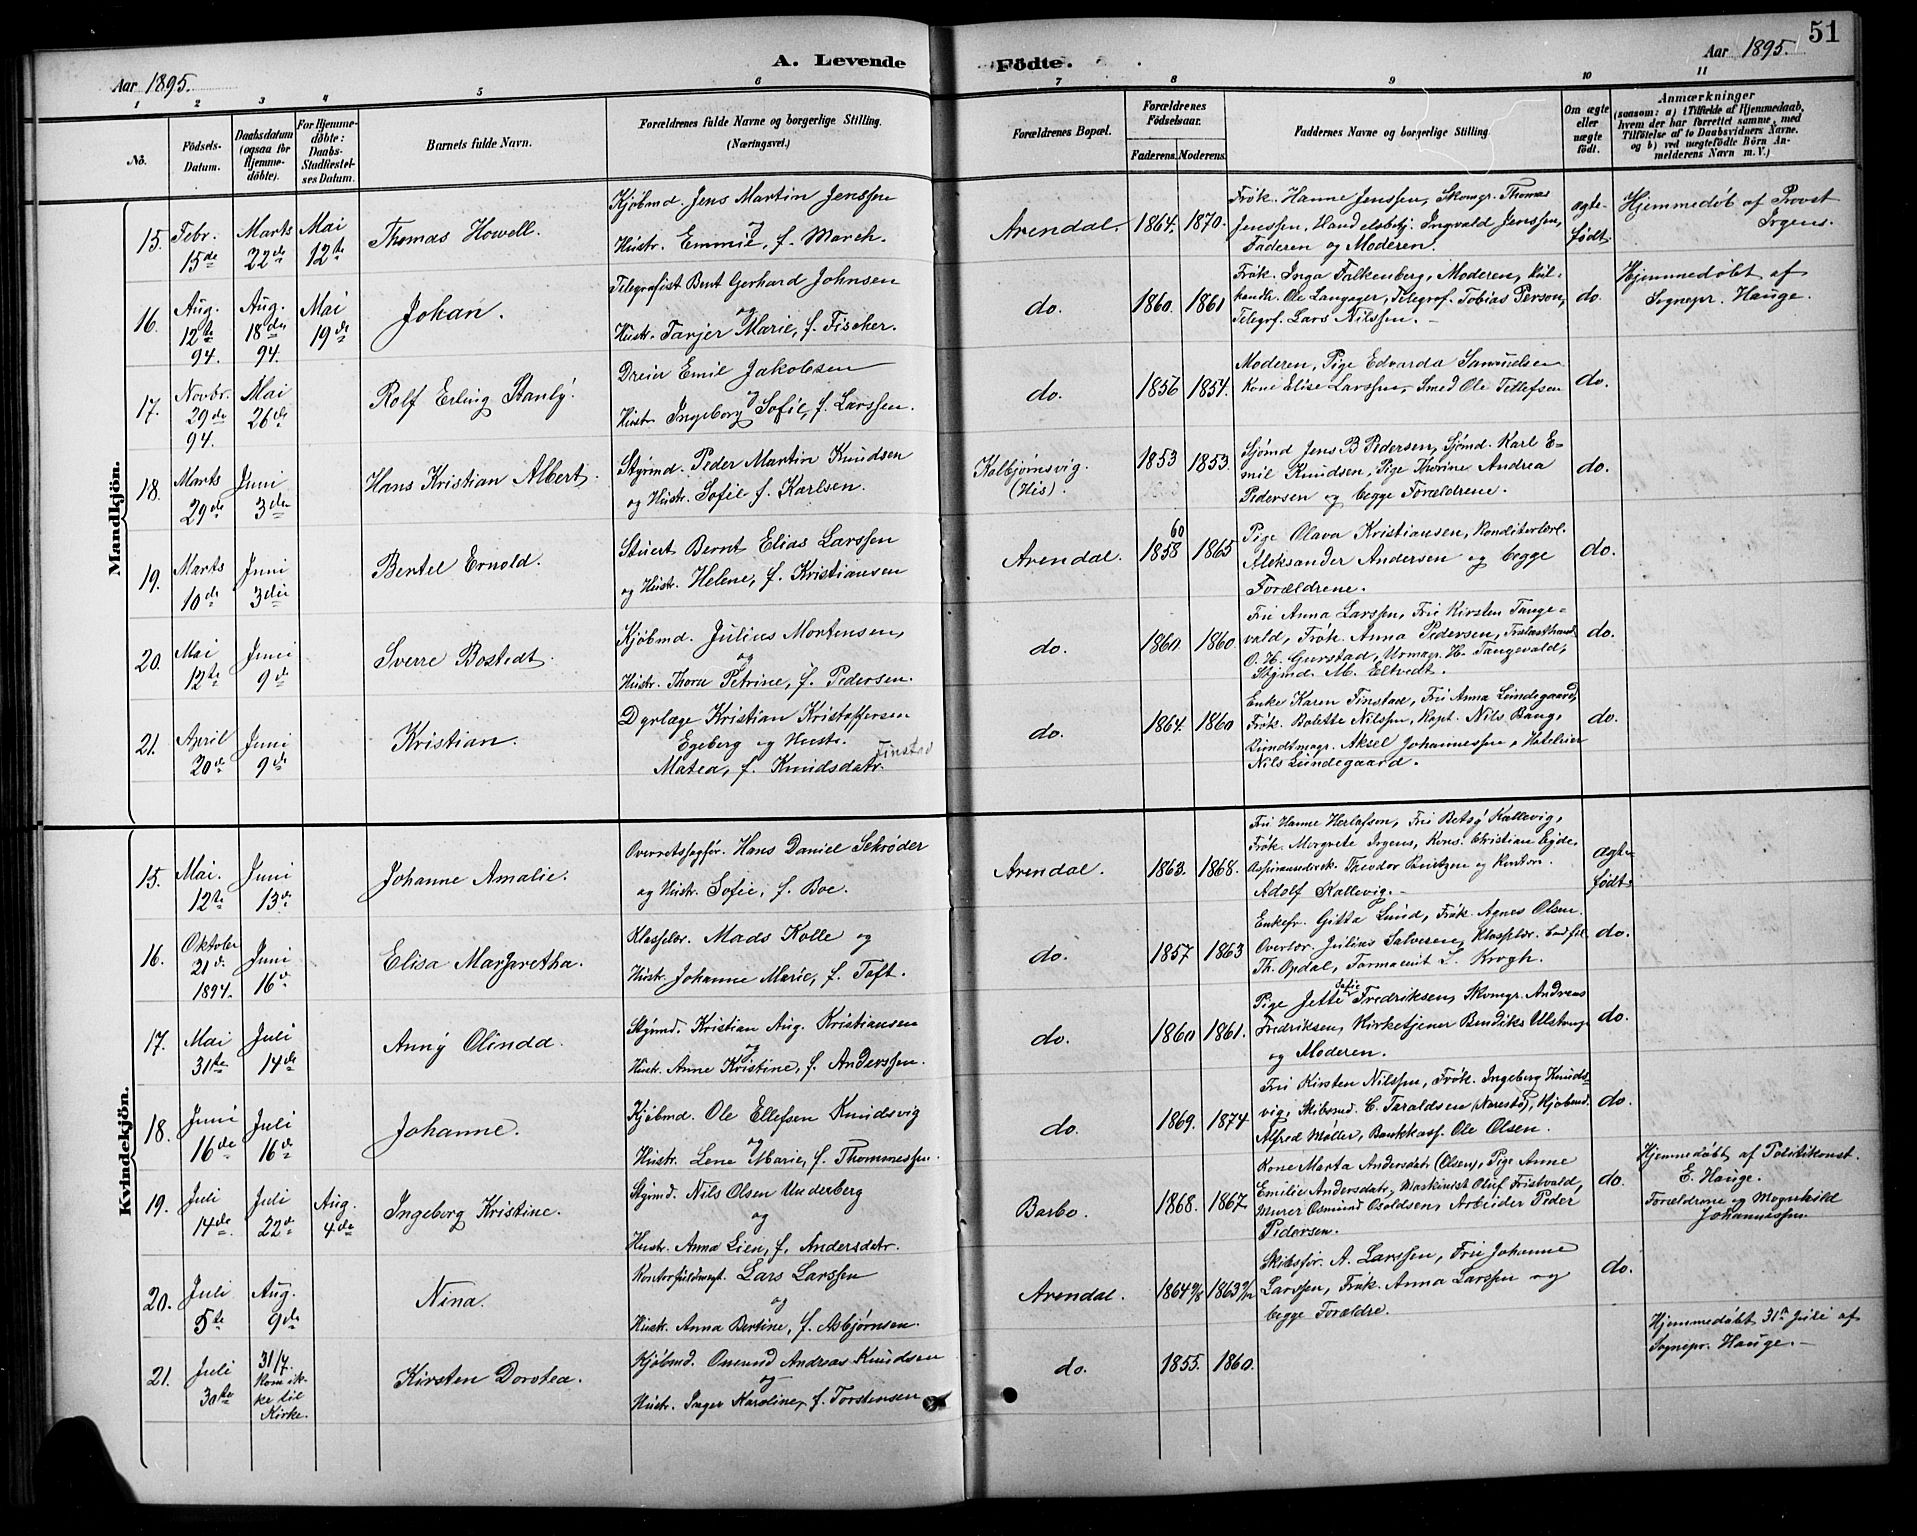 51
Aar 1895.
A. Levende
Födte.
Aar 1895.
1 2 3 4 5 6 7 8 9 10 11
Nô.
Födsels-
Datum.
Daabsdatum
(ogsaa for
Hjemme-
döbte).
For Hjemme-
döbte:
Daabs-
Stadfæstel-
ses Datum.
Barnets fulde Navn.
Forældrenes fulde Navne og borgerlige Stilling.
(Næringsvei.)
Forældrenes Bopæl.
Forældrenes
Födselsaar.
Faderens. Moderens.
Faddernes Navne og borgerlige Stilling.
Om ægte
eller
uægte
födt.
Anmærkninger
(saasom: a) i Tilfælde af Hjemmedaab,
hvem der har forrettet samme, med
Tilföielse af to Daabsvidners Navne.
og b) ved uægtefödte Börn An-
melderens Navn m. V.)
Mandkjön.
15. Febr. 15de
Marts 22de
Mai 12te
Thomas Howell.
Kjøbmd. Jens Martin Jenssen
og
Hustr. Emmie, f. March.
Arendal. 1864. 1870.
Frøk. Hanne Jenssen, Skomgr. Thomas
Jenssen, Handelsbetj. Ingvald Jenssen,
Faderen og Moderen.
ægte-
født.
Hjemmedøb af Provst
Irgens.
16. Aug. 12te 94.
Aug. 18de 94.
Mai 19de
Johan.
Telegrafist Bent Gerhard Johnsen
og
Hustr. Tarjer Marie, f. Fischer.
do. 1860. 1861
Frøk. Inga Falkenberg, Moderen, Kul-
handlr. Ole Langager, Telegrof. Tobias Person,
Telegrf. Lars Nilssen.
do.
Hjemmedøbt af
Sognepr. Hauge.
17. Novbr. 29de 94.
Mai 26de
Rolf Erling Stanly.
Dreier Emil Jakobsen
og
Hustr. Ingeborg Sofie, f. Larssen.
do. 1856 1854.
Moderen, Pige Edvarda Samuelsen
Kone Elise Larssen, Smed Ole Tellefsen
do.
18. Marts 29de
Juni 3die
Hans Kristian Albert.
Styrmd. Peder Martin Knudsen
og Hustr. Sofie f. Karlsen.
Kalbjørnsvig.
(His).
1853 1853.
Sjømd Jens B Pedersen, Sjømd. Karl E-
mil Knudsen, Pige Thorine Andrea
Pedersen og begge Forældrene.
do.
19. Marts 10de
Juni 3die
Bertel Ernold.
Stuert Bernt Elias Larssen
og Hustr. Helene, f. Kristiansen
Arendal. 60
1858 1865
Pige Olava Kristiansen, Konditorlærl.
Aleksander Andersen og begge
Forældrene.
do.
20. Mai 12te
Juni 9de
Sverre Bostedt.
Kjøbmd. Julius Mortensen,
og
Hustr. Thora Petrine, f. Pedersen.
do. 1860. 1860.
Fru Anna Larssen, Fru Kirsten Tange-
vald, Frøk. Anna Pedersen,
O. H. Gurstad, Urmagr. H. Tangevald,
Styrmd. M. Eltvedt.
do.
21. April 20de
Juni 9de
Kristian.
Dyrlæge Kristian Kristoffersen
Egeberg og Hustr. Finstad
Matea, f. Knudsdatr.
do. 1864. 1860
Enke Karen Finstad, Fru Anna Lundegaard,
Frøk. Bolette Nilssen, Kapt. Nils Bang,
Bundtmagr. Aksel Johannessen, Hoteleier
Nils Lundegaard.
do.
Kvindekjön.
15. Mai. 12te
Juni 13de
Johanne Amalie.
Overretssagfør. Hans Daniel Schrøder
og Hustr. Sofie, f. Boe.
Arendal. 1863. 1868.
Fru Hanne Herlofson, Fru Betsy Kallevig,
Frøk. Margrete Irgens, Kons. Christian Eyde,
Theodor Bentzen og Kontori.
Adolf Kallevig.
ægte-
født.
16. Oktober 21de 1894.
Juni 16de
Elisa Margaretha.
Klasselær. Mads Kolle og
Hustr. Johanne Marie, f. Toft.
do. 1857 1863
Enkefr. Gitta Lund, Frøk. Agnes Olsen.
Overlær. Julius Salvesen, Klasselær.
Th. Opdal, Farmaceut L. Krogh.
do.
17. Mai 31te
Juli 14de
Anny Olinda.
Styrmd. Kristian Aug. Kristiansen
og
Hustr. Anne Kristine, f. Anderssen.
do. 1860 1861.
Pige Jette Sofie Fredriksen, Skomgr. Andreas
Fredriksen, Kirketjener Bendiks Ulstrup
og Moderen.
do.
18. Juni 16de
Juli 16de
Johanne.
Kjøbmd. Ole Ellefsen Knudsvig
og
Hustr. Lene Marie, f. Thommessen.
do. 1869. 1874
Fru Kirsten Nilssen, Frøk. Ingeborg Knuds-
vig, Skibsmd. C. Taraldsen (Narestø), Kjøbmd.
Alfred Møller, Bankkass. Ole Olsen.
do.
19. Juli 14de.
Juli 22de
Aug. 4de
Ingeborg Kristine.
Styrmd. Nils Olsen Underberg
og
Hustr. Anna Lien, f. Andersdatr.
Barbo. 1868. 1867.
Kone Marta Andersdatr (Olsen), Pige Anne
Emilie Andersdatr, Maskinist Oluf Fristvald,
Murer Osmund Osoldsen, Arbeider Peder
Pedersen.
do.
Hjemmedøbt af Politikonst.
E. Hauge.
Forældrene og Magnhild
Johannessen.
20. Juli 5te
Aug. 9de
Nina.
Kontorfuldmægt. Lars Larssen
og
Hustr. Anna Bertine, f. Asbjørnsen.
Arendal. 1864 1863
Skibsfør. A. Larssen, Fru Johanne
Larssen, Frøk. Anna Larssen og
begge Forældre.
do.
21. Juli 30te
31/7.
Kom ik-
ke til
Kirke.
Kirsten Dorotea.
Kjøbmd. Omund Andreas Knudsen
og
Hustr. Inger Karoline, f. Torstensen
do. 1855. 1860.
Hjemmedøbt 31te Juli af
Sognepr. Hauge.